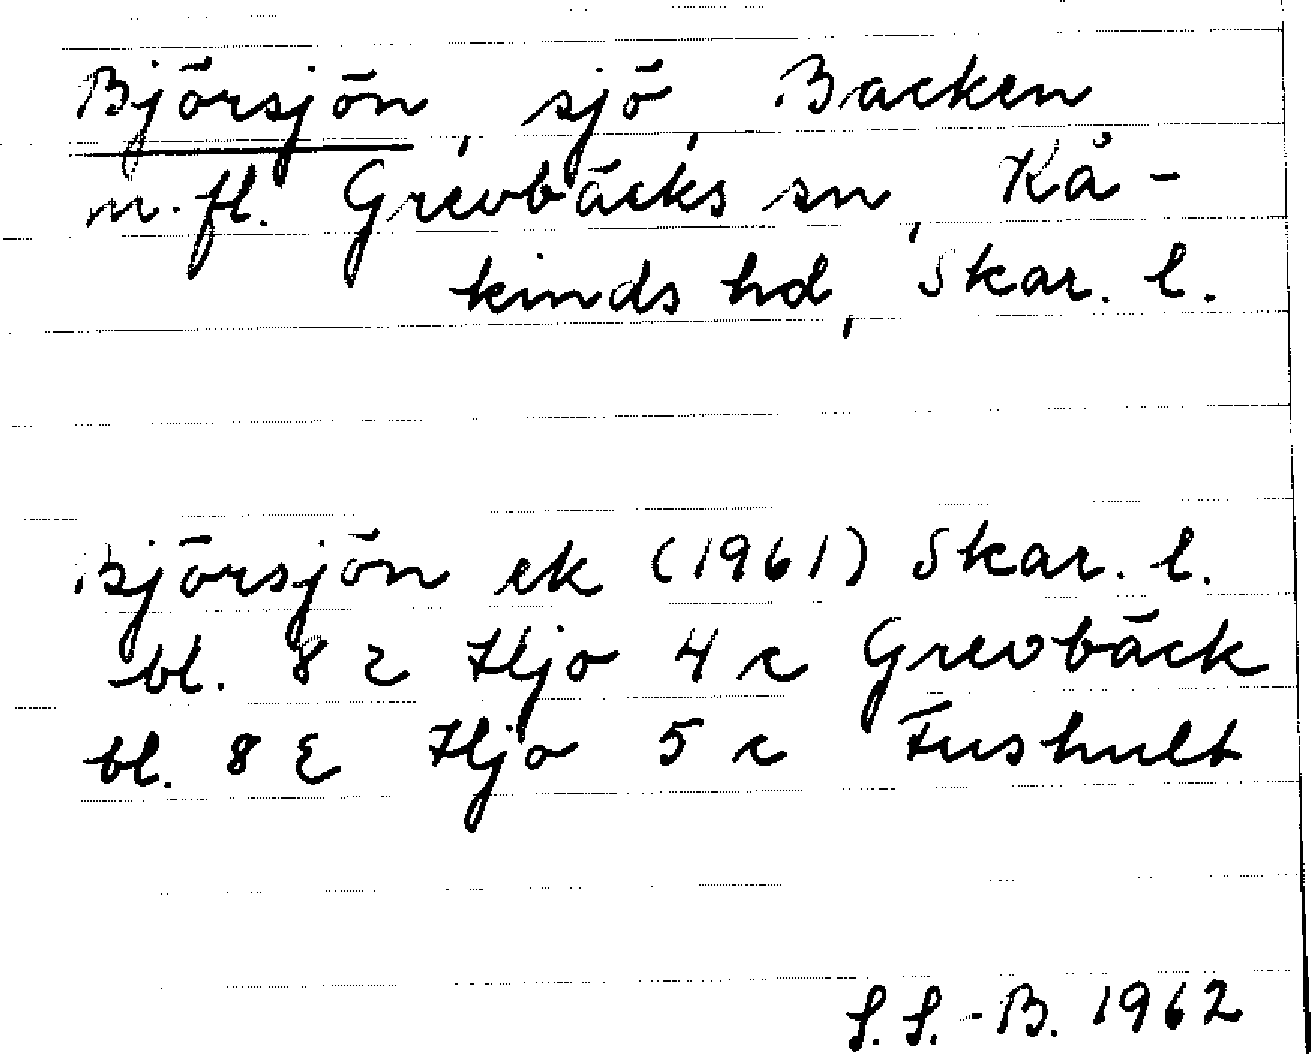 Björsjön, sjö, Backen
m.fl. Grevbäcks sn, Kå-
kinds hd, Skar. l.
Björsjön ek (1961) Skar. l.
bl. 8 E Hjo 4 c Grevbäck
bl. 8 E Hjo 5 c Fushult
S.S.-B. 1962